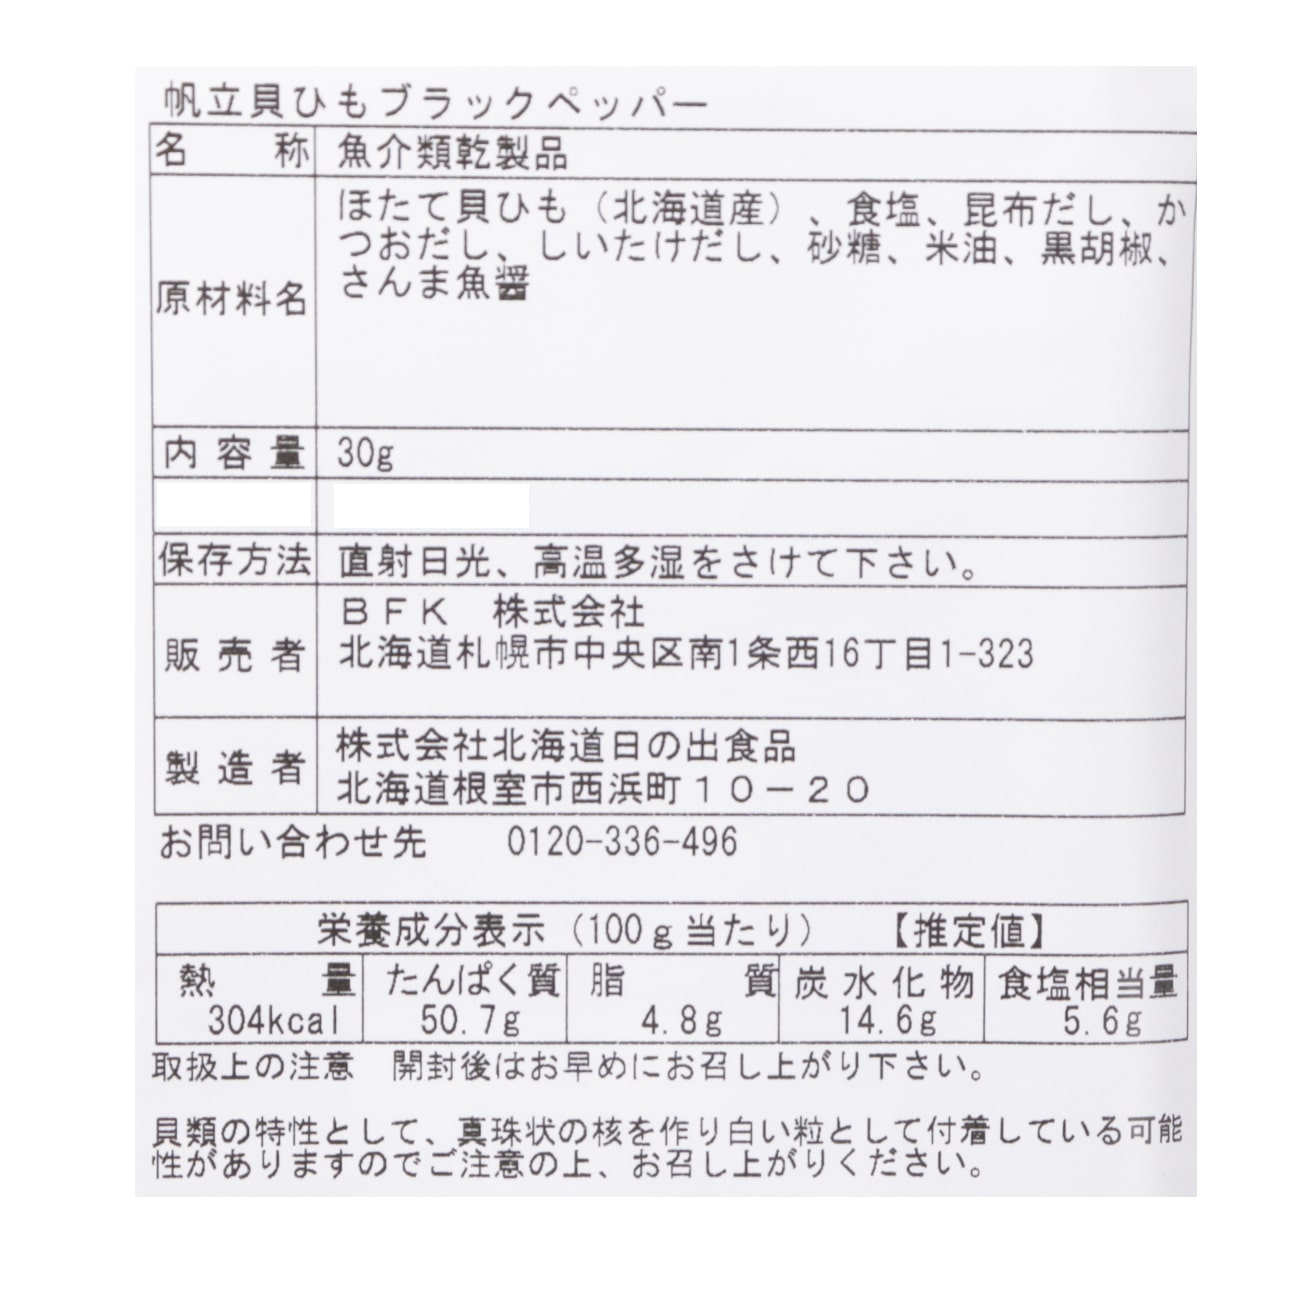 帆立貝ひもブラックペッパー
名　称　魚介類乾製品
原材料名　ほたて貝ひも（北海道産）、食塩、昆布だし、か
つおだし、しいたけだし、砂糖、米油、黒胡椒、
さんま魚醤
内容量　30g
保存方法　直射日光、高温多湿をさけて下さい。
販売者　ＢＦＫ　株式会社
北海道札幌市中央区南1条西16丁目1-323
製造者　株式会社北海道日の出食品
北海道根室市西浜町１０－２０
お問い合わせ先　0120-336-496
栄養成分表示（100ｇ当たり）　【推定値】
熱量　たんぱく質　脂質　炭水化物　食塩相当量
304kcal　50.7g　4.8g　14.6g　5.6g
取扱上の注意　開封後はお早めにお召し上がり下さい。
貝類の特性として、真珠状の核を作り白い粒として付着している可能
性がありますのでご注意の上、お召し上がりください。